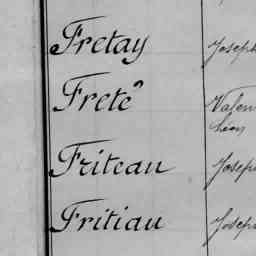 Fretay Joseph
Freté Valen
tien
Friteau Joseph
Fritiau Joseph